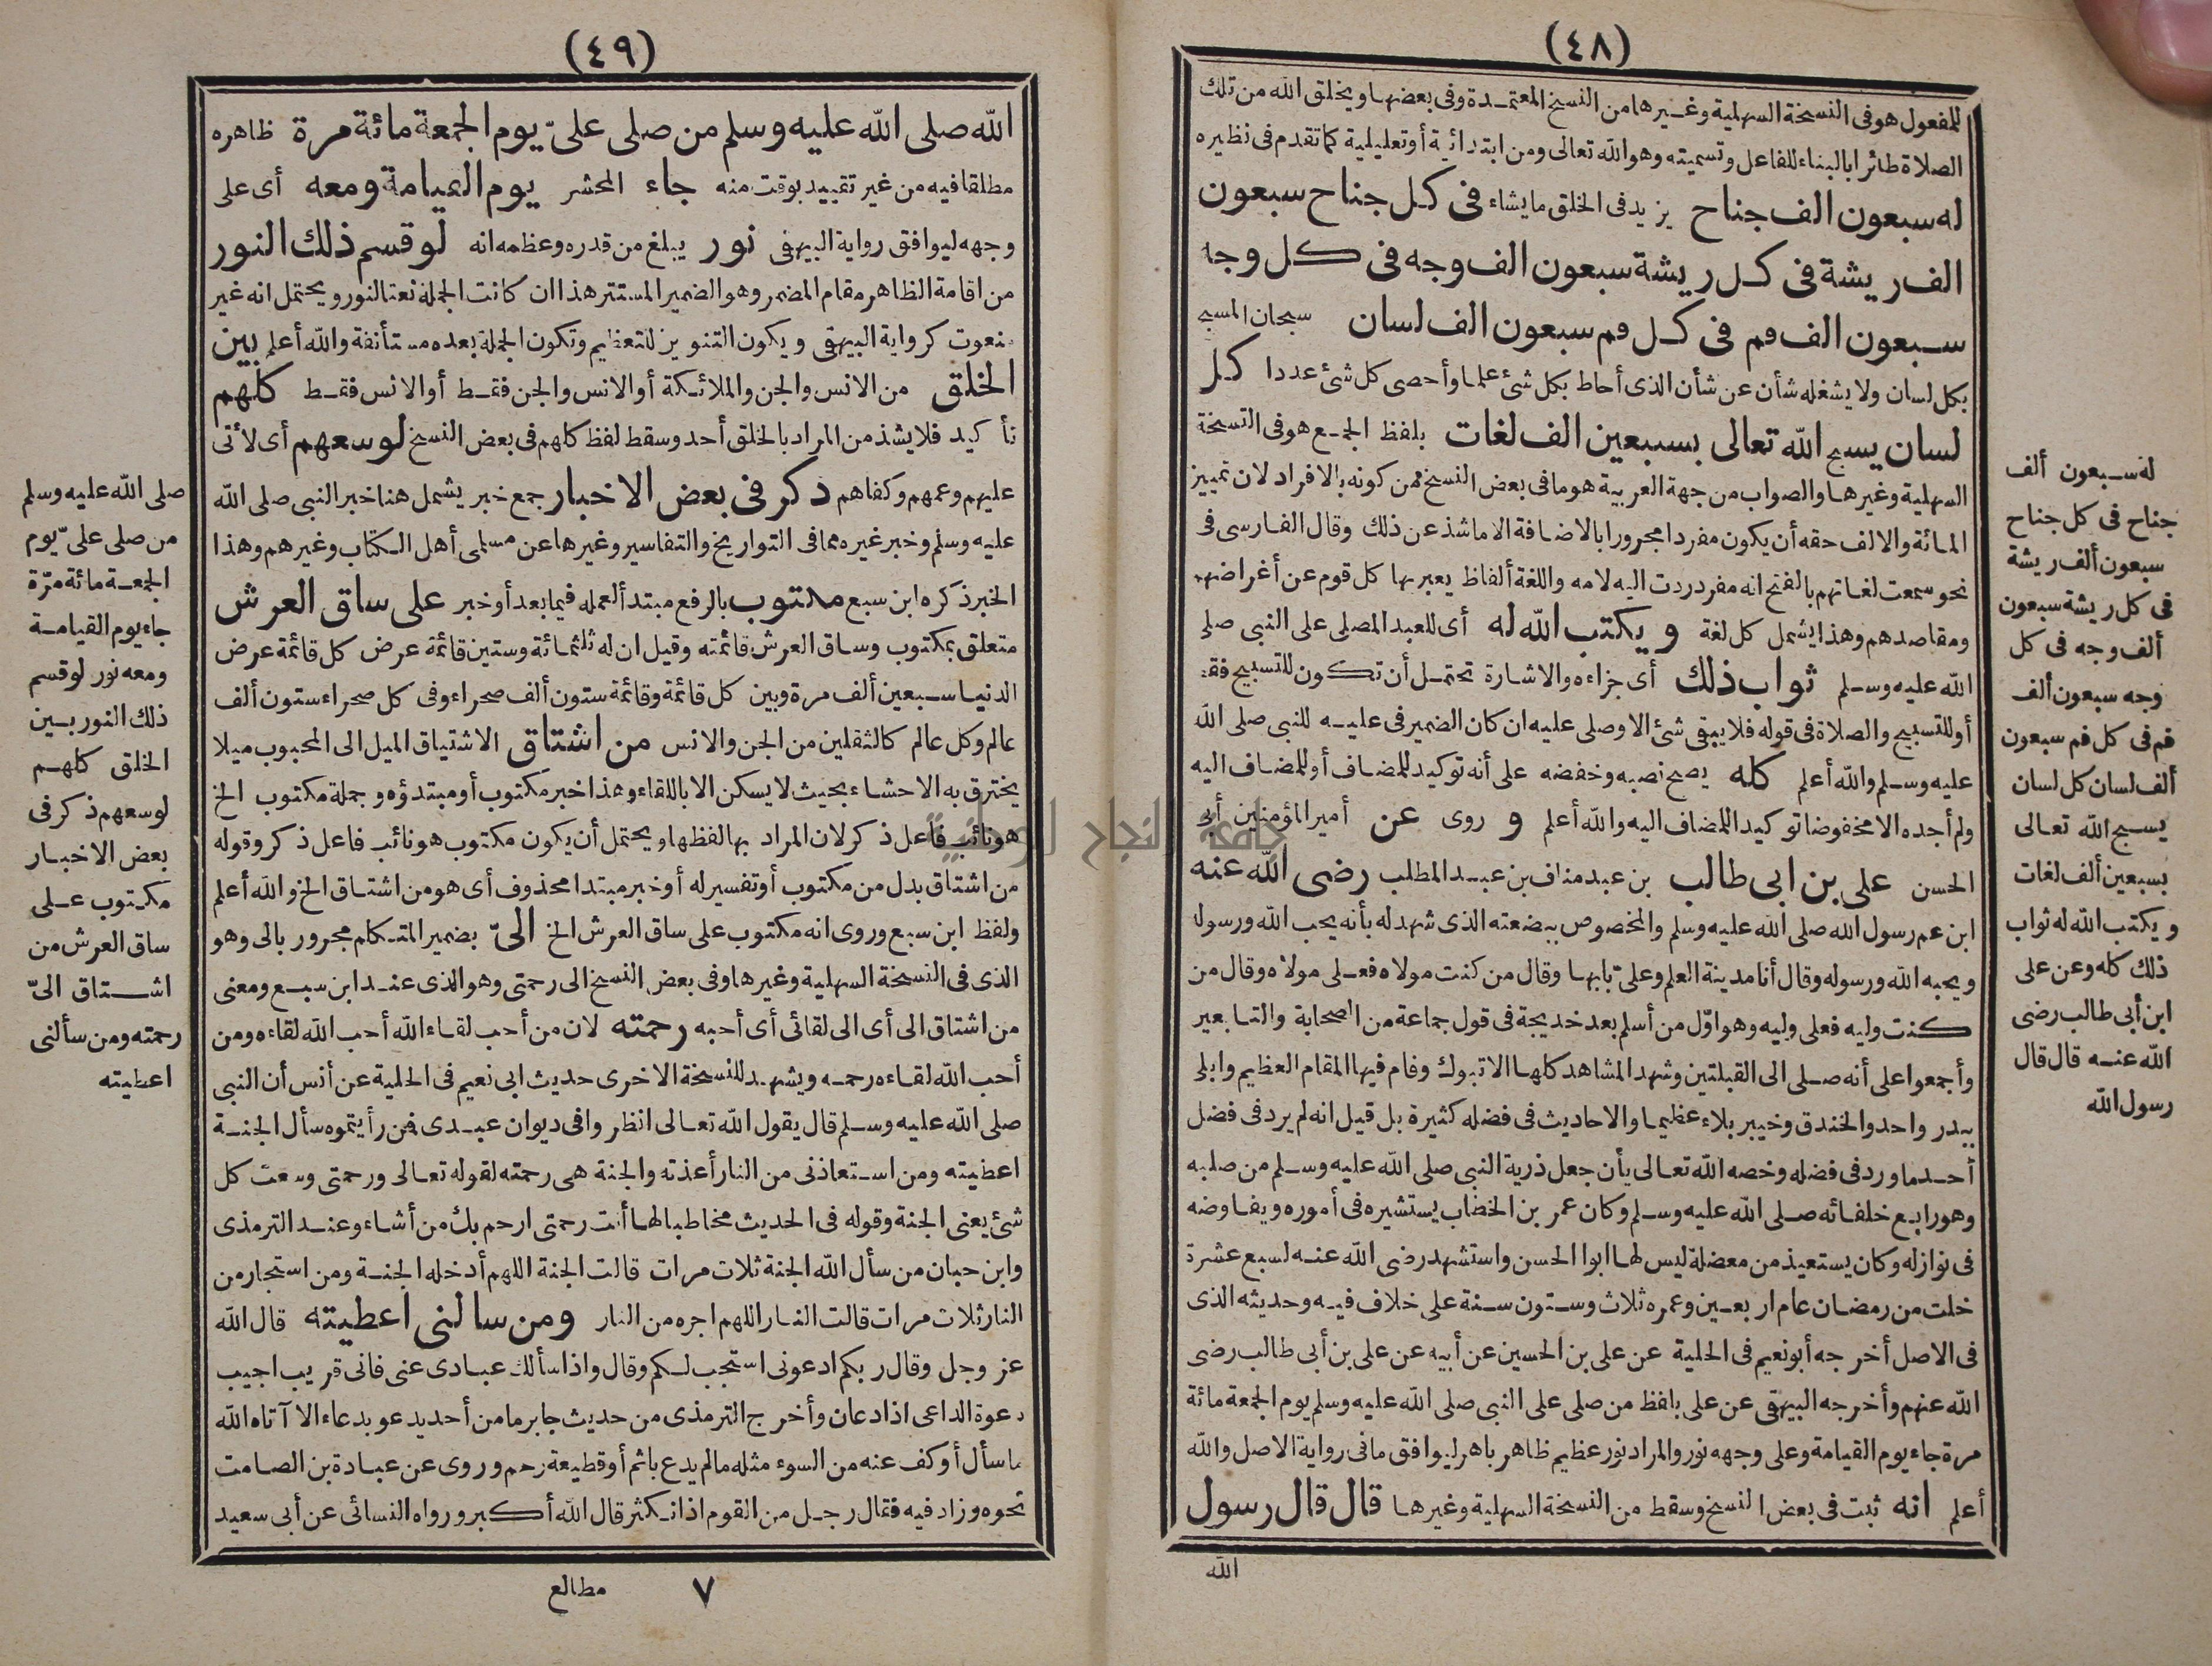 (٤٨)
للمفعول هو فى النسخة السهلية وغيرها من النسخ المعتمدة وفى بعضها ويخلق الله من تلك
الصلاة طائرا بالبناء للفاعل وتسميته وهو الله تعالى ومن ابتدائية أو تعليلية كما تقدم فى نظيره
له سبعون الف جناح يزيد فى الخلق ما يشاء فى كل جناح سبعون
الف ريشة فى كل ريشة سبعون الف وجه فى كل وجه
سبعون الف فم فى كل فم سبعون الف لسان سبحان المسبح
بكل لسان ولا يشغله شأن عن شأن الذى أحاط بكل شئ علما وأحصى كل شئ عددا كل
لسان يسبح الله تعالى بسبعين الف لغات بلفظ الجمع هو فى النسخة
السهلية وغيرها والصواب من جهة العربية هو ما فى بعض النسخ فمن كونه بالافراد لان تمييز
المائة والالف حقه أن يكون مفردا مجرورا بالاضافة الا ما شذ عن ذلك وقال الفارسى فى
نحو سمعت لغاتهم بالفتح انه مفرد ردت اليه لامه واللغة ألفاظ يعبر بها كل قوم عن أغراضهم
ومقاصدهم وهذا يشمل كل لغة ويكتب الله له أى للعبد المصلى على النبى صلى
الله عليه وسلم ثواب ذلك أى جزاءه والاشارة تحتمل أن تكون للتسبيح فقط
أو للتسبيح والصلاة فى قوله فلا يبقى شئ الا وصلى عليه ان كان الضمير فى عليه للنبى صلى الله
عليه وسلم والله أعلم كله يصح نصبه وخفضه على أنه توكيد للمضاف أو للمضاف اليه
ولم أجده الا مخفوضا توكيد اللمضاف اليه والله أعلم و روى عن أمير المؤمنين أبى
الحسن على بن ابى طالب بن عبد مناف بن عبد المطلب رضى الله عنه
ابن عم رسول الله صلى الله عليه وسلم والمخصوص ببضعته الذى شهد له بأنه يحب الله ورسوله
ويحبه الله ورسوله وقال أنا مدينة العلم وعلىّ بابها وقال من كنت مولاه فعلى مولاه وقال من
كنت وليه فعلى وليه وهو اوّل من أسلم بعد خديجة فى قول جماعة من الصحابة والتابعين
وأجمعوا على أنه صلى الى القبلتين وشهد المشاهد كلها الا تبوك وقام فيها المقام العظيم وابلى
ببدر واحد والخندق وخيبر بلاء عظيما والاحاديث فى فضله كثيرة بل قيل انه لم يرد فى فضل
أحد ما ورد فى فضله وخصه الله تعالى بأن جعل ذرية النبى صلى الله عليه وسلم من صلبه
وهو رابع خلفائه صلى الله عليه وسلم وكان عمر بن الخطاب يستشيره فى أموره ويفاوضه
فى نوازله وكان يستعيذ من معضلة ليس لها ابو الحسن واستشهد رضى الله عنه لسبع عشرة
خلت من رمضان عام اربعين وعمره ثلاث وستون سنة على خلاف فيه وحديثه الذى
فى الاصل أخرجه أبو نعيم فى الحلية عن على بن الحسين عن أبيه عن على بن أبى طالب رضى
الله عنهم وأخرجه البيهقى عن على بلفظ من صلى على النبى صلى الله عليه وسلم يوم الجمعة مائة
مرة جاء يوم القيامة وعلى وجهه نور والمراد نور عظيم ظاهر باهر ليوافق ما فى رواية الاصل والله
أعلم انه ثبت فى بعض النسخ وسقط من النسخة السهلية وغيرها قال قال رسول
الله
له سبعون ألف
جناح فى كل جناح
سبعون ألف ريشة
فى كل ريشة سبعون
ألف وجه فى كل
وجه سبعون ألف
فم فى كل فم سبعون
ألف لسان كل لسان
يسبح الله تعالى
بسبعين ألف لغات
ويكتب الله له ثواب
ذلك كله وعن على
ابن أبى طالب رضى
الله عنه قال قال
رسول الله
(٤٩)
الله صلى الله عليه وسلم من صلى علىّ يوم الجمعة مائة مرة ظاهره
مطلقا فيه من غير تقييد بوقت منه جاء المحشر يوم القيامة ومعه أى على
وجهه ليوافق رواية البيهقى نور يبلغ من قدره وعظمه انه لو قسم ذلك النور
من اقامة الظاهر مقام المضمر وهو الضمير المستتر هذا ان كانت الجملة نعتا لنور ويحتمل انه غير
منعوت كرواية البيهقى ويكون التنوين للتعظيم وتكون الجملة بعده مستأنفة والله أعلم بين
الخلق من الانس والجن والملائكة أو الانس والجن فقط أو الانس فقط كلهم
تأكيد فلا يشذ من المراد بالخلق أحد وسقط لفظ كلهم فى بعض النسخ لوسعهم أى لأتى
عليهم وعمهم وكفاهم ذكر فى بعض الاخبار جمع خبر يشمل هنا خبر النبى صلى الله
عليه وسلم وخبر غيره مما فى التواريخ والتفاسير وغيرها عن مسلمى أهل الكتاب وغيرهم وهذا
الخبر ذكره ابن سبع مكتوب بالرفع مبتدأ لعمله فيما بعد أو خبر على ساق العرش
متعلق بمكتوب وساق العرش قائمته وقيل ان له ثلثمائة وستين قائمة عرض كل قائمة عرض
الدنيا سبعين ألف مرة وبين كل قائمة وقائمة ستون ألف صحراء وفى كل صحراء ستون ألف
عالم وكل عالم كالثقلين من الجن والانس من اشتاق الاشتياق الميل الى المحبوب ميلا
يخترق به الاحشاء بحيث لا يسكن الا باللقاء وهذا خبر مكتوب أو مبتدؤه وجملة مكتوب الخ
هو نائب فاعل ذكر لان المراد بها لفظها ويحتمل أن يكون مكتوب هو نائب فاعل ذكر وقوله
من اشتاق بدل من مكتوب أو تفسير له أو خبر مبتدا محذوف أى هو من اشتاق الخ والله أعلم
ولفظ ابن سبع وروى انه مكتوب على ساق العرش الخ الىّ بضمير المتكلم مجرور بالى وهو
الذى فى النسخة السهلية وغيرها وفى بعض النسخ الى رحمتى وهو الذى عند ابن سبع ومعنى
من اشتاق الى أى الى لقائى أى أحبه رحمته لان من أحب لقاء الله أحب الله لقاءه ومن
أحب الله لقاءه رحمه ويشهد للنسخة الاخرى حديث ابى نعيم فى الحلية عن أنس أن النبى
صلى الله عليه وسلم قال يقول الله تعالى انظروا فى ديوان عبدى فمن رأيتموه سأل الجنة
اعطيته ومن استعاذنى من النار أعذته والجنة هى رحمته لقوله تعالى ورحمتى وسعت كل
شئ يعنى الجنة وقوله فى الحديث مخاطبا لها أنت رحمتى ارحم بك من أشاء وعند الترمذى
وابن حبان من سأل الله الجنة ثلاث مرات قالت الجنة اللهم أدخله الجنة ومن استجار من
النار ثلاث مرات قالت النار اللهم اجره من النار ومن سالنى اعطيته قال الله
عز وجل وقال ربكم ادعونى استجب لكم وقال واذا سألك عبادى عنى فانى قريب اجيب
دعوة الداعى اذا دعان وأخرج الترمذى من حديث جابر ما من أحد يدعو بدعاء الا آتاه الله
ما سأل أو كف عنه من السوء مثله ما لم يدع باثم أو قطيعة رحم وروى عن عبادة بن الصامت
نحوه وزاد فيه فقال رجل من القوم اذا نكثر قال الله أكبر ورواه النسائى عن أبى سعيد
٧ مطالع
صلى الله عليه وسلم
من صلى علىّ يوم
الجمعة مائة مرّة
جاء يوم القيامة
ومعه نور لو قسم
ذلك النور بين
الخلق كلهم
لوسعهم ذكر فى
بعض الاخبار
مكتوب على
ساق العرش من
اشتاق الىّ
رحمته ومن سألنى
اعطيته
جامعة النجاح الوطنية